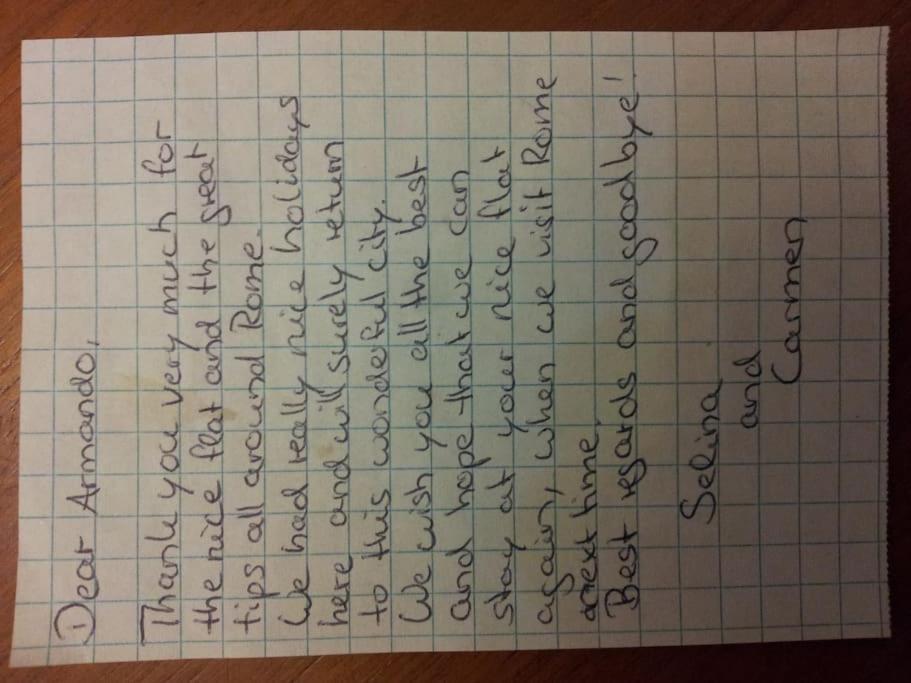 Dear Armando,
Thank you very much for
the nice flat and the great
tips all around Rome.
We had really nice holidays
here and will surely return
to this wonderful city.
We wish you all the best
and hope that we can
stay at your nice flat
again, when we visit Rome
next time.
Best regards and goodbye!
Selina
and
Carmen